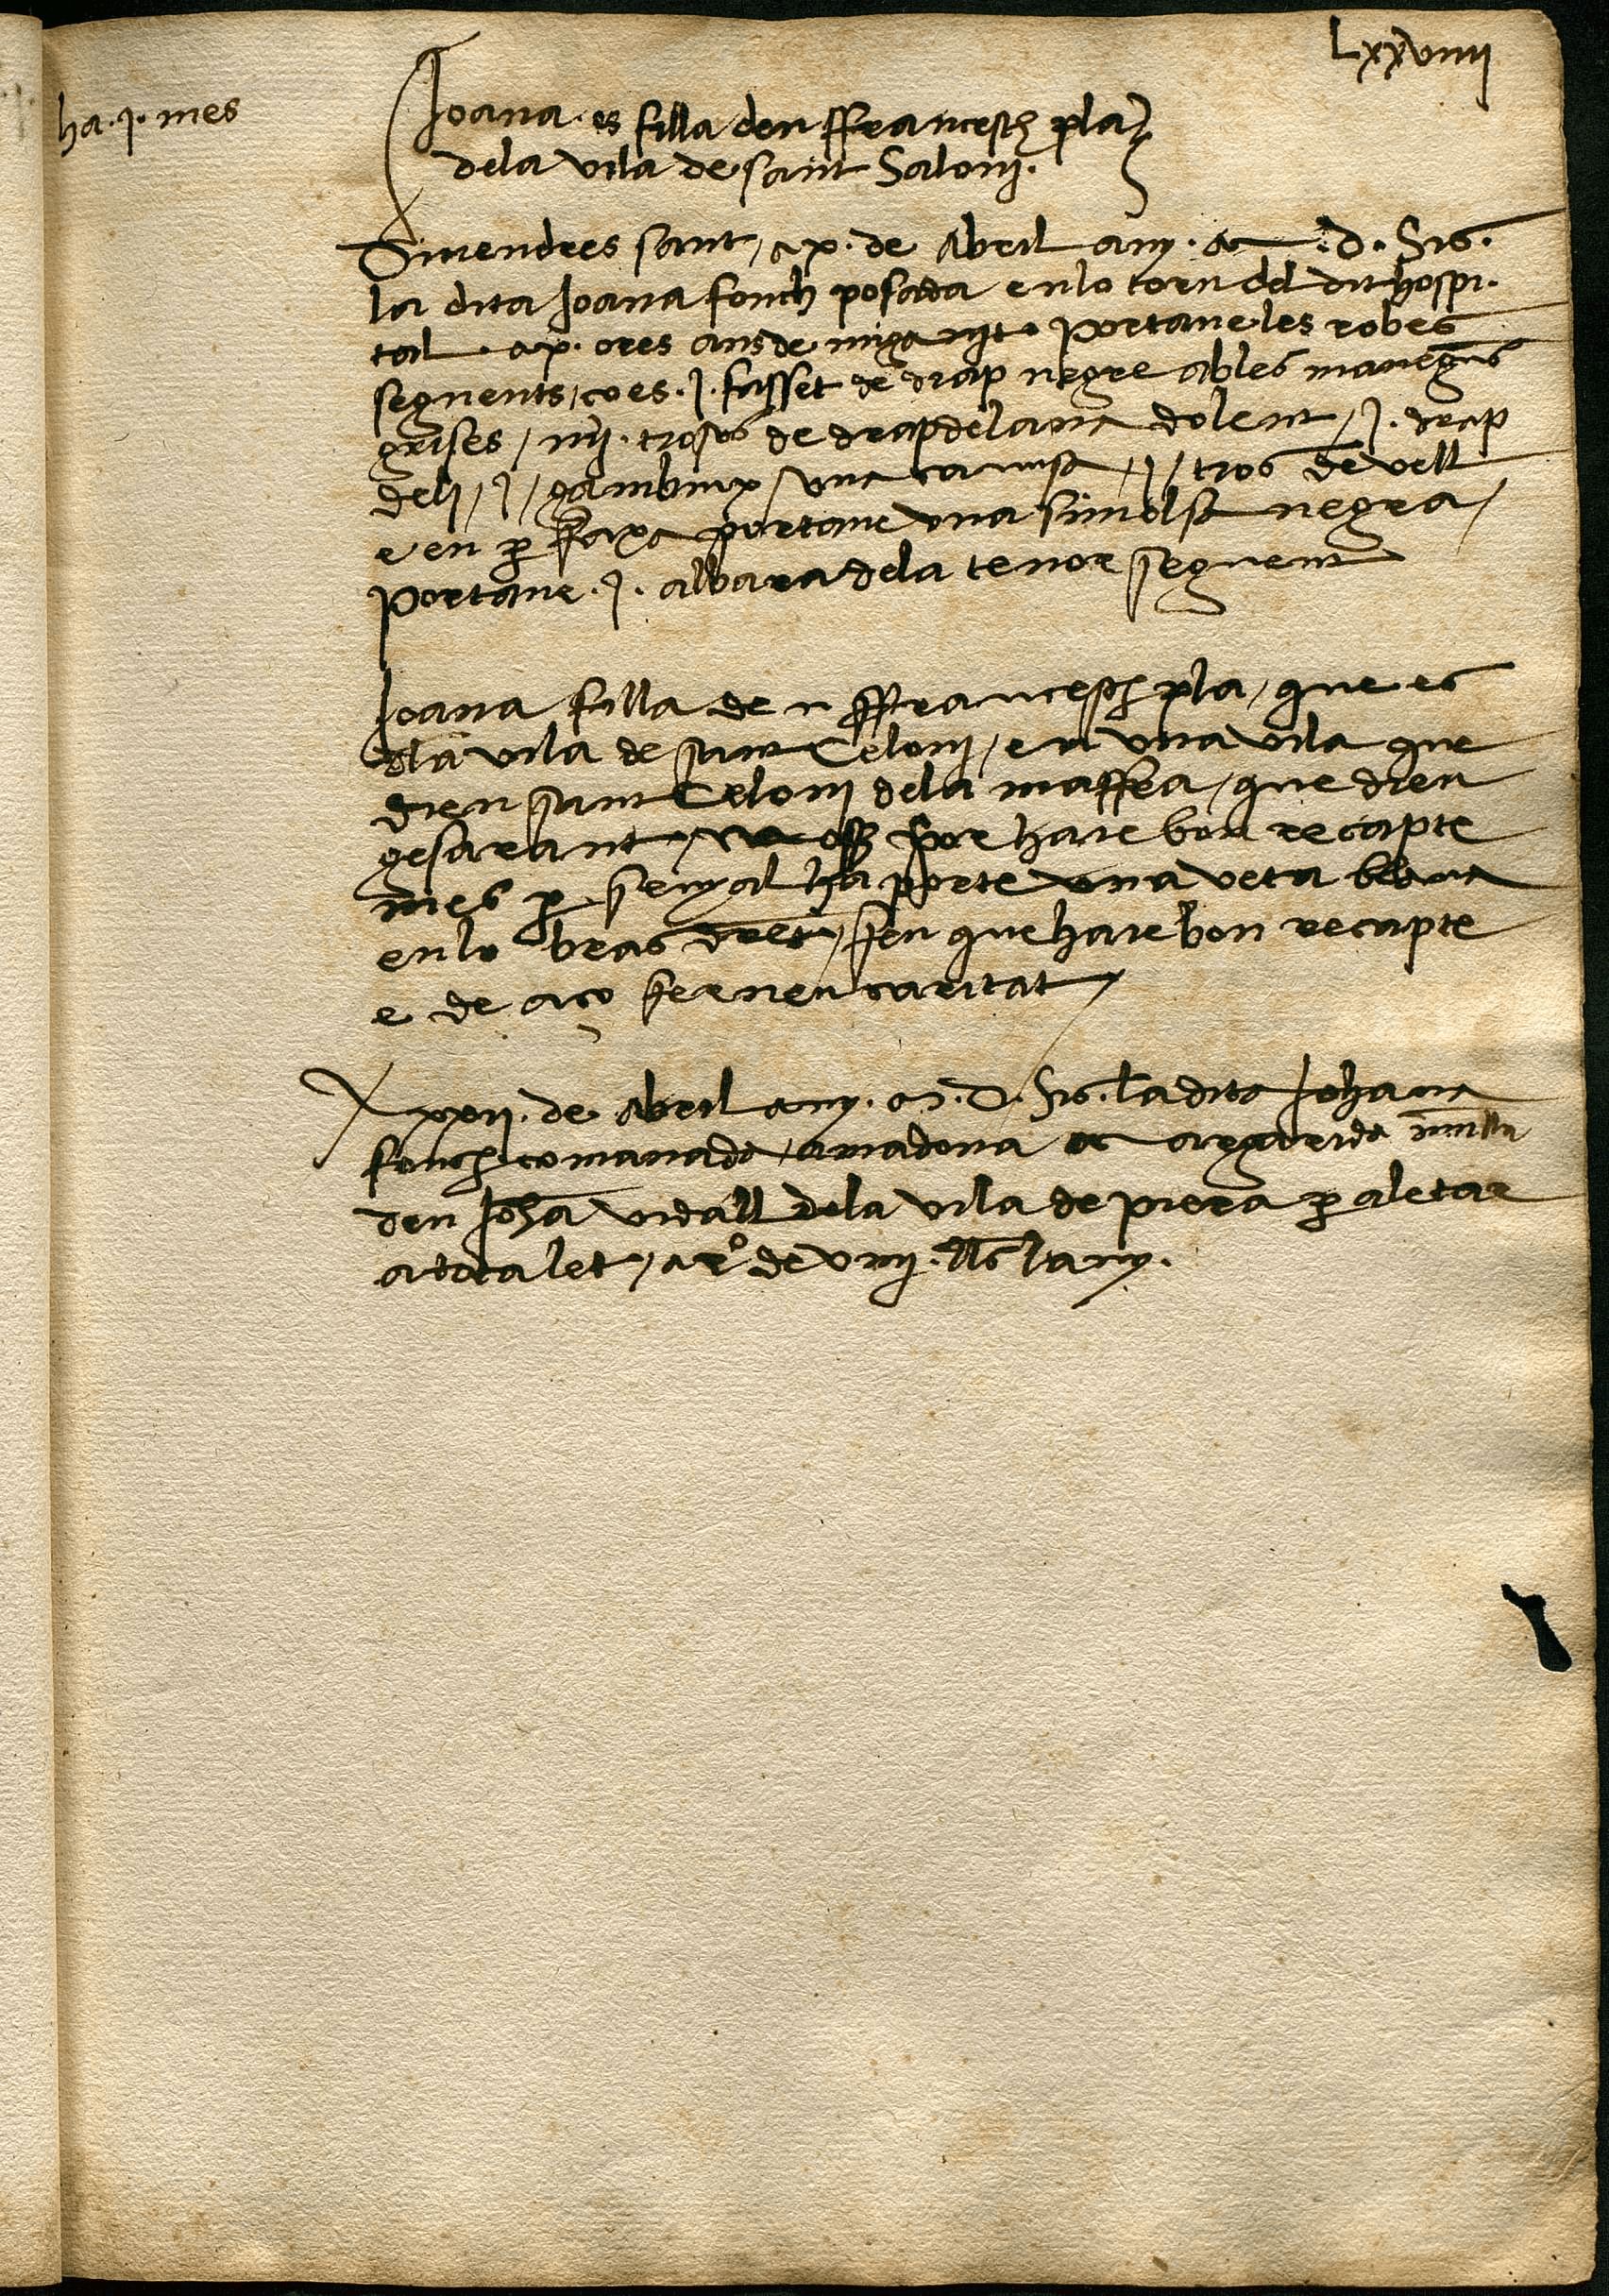 Lxxviiij
ha .j. mes
Joana es filla den ffrancesch pla
dela vila de sant Saloni.
Divendres sant, a x. de Abril any . M . d . sis.
la dita Joana fonch posada enlo torn del dit hospi-
tal . a x. ores ans de miga nit. Portave les robes
seguents, co es .j. fusset de drap negre ables manegues
grises / iiij. trosos de drap de lana dolent / j. drap
deli / j / gambuix / una camisa / j / tros de vell
e en p faxa portave una simolsa negra /
Portave .j. albara dela tenor seguent
Joana filla de n ffrancesch pla, que es
dla vila de sant Celoni, en una vila que
dien sant Celoni dela que dien
por hare bon recapte
mes p senyal ha porte una veta blava
enlo bras dret, feu que hare bon recapte
e de aço ferneu caritat
xxij. de Abril any . M . D . sis. la dita Johana
fonch comanada, a madona margarida mull
den Joha vidall dela vila de piera p aletar
a tota let, a ro de viiij. lls lany.